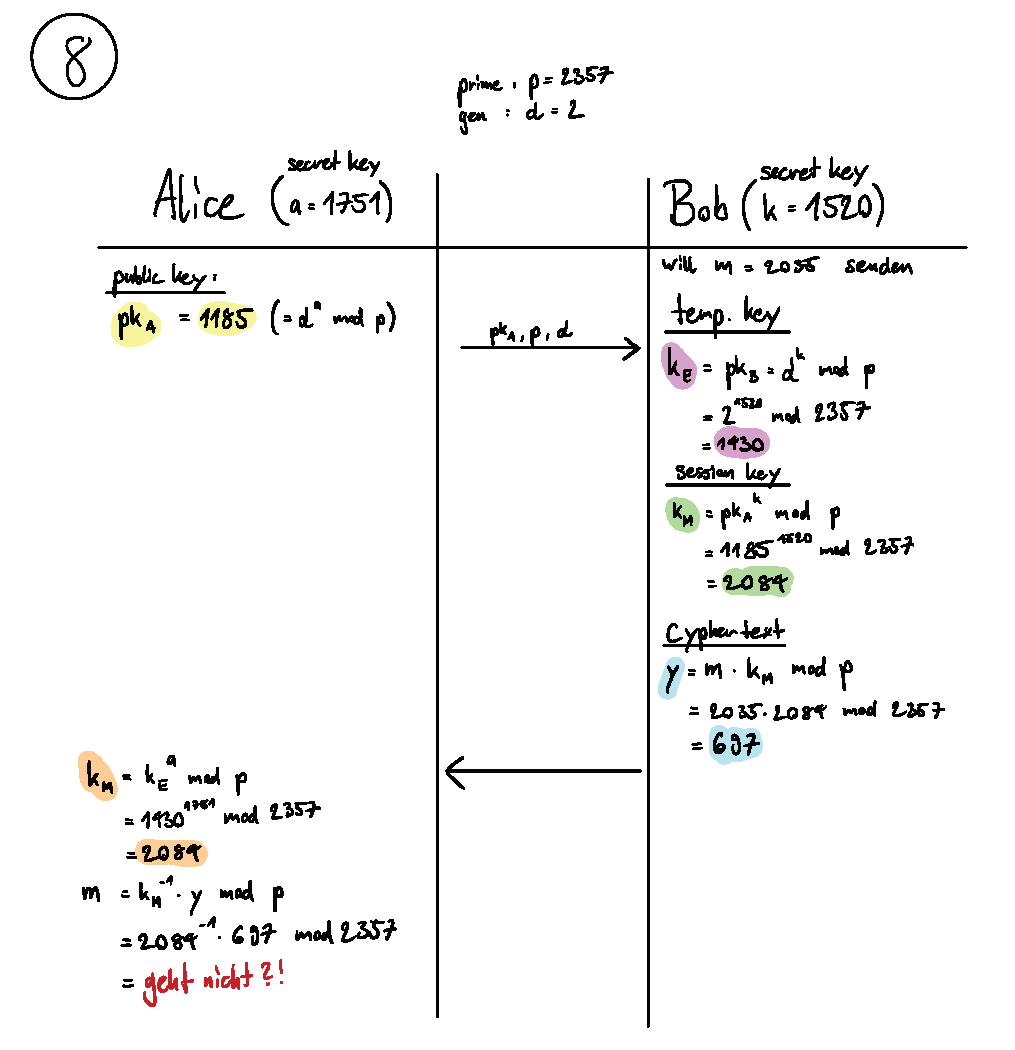 8
prime : p = 2357
gen : d = 2
secret key
Alice (a = 1751)
secret key
Bob (k = 1520)
public key:
pk_A = 1185 (= d^a mod p)
pk_A, p, d
will m = 2035 senden
temp. key
k_E = pk_B = d^k mod p
= 2^1520 mod 2357
= 1430
session key
k_M = pk_A^k mod p
= 1185^1520 mod 2357
= 2084
Cyphertext
y = m · k_M mod p
= 2035 · 2084 mod 2357
= 697
k_M = k_E^a mod p
= 1430^1751 mod 2357
= 2084
m = k_M^-1 · y mod p
= 2084^-1 · 697 mod 2357
= geht nicht?!